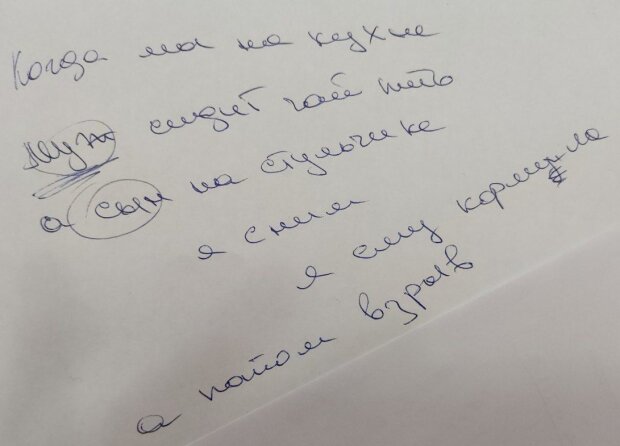 Когда мы на кухне
муж сидит чай пить
а сын на стульчике
я с ним
я ему кормила
а патом взрыв